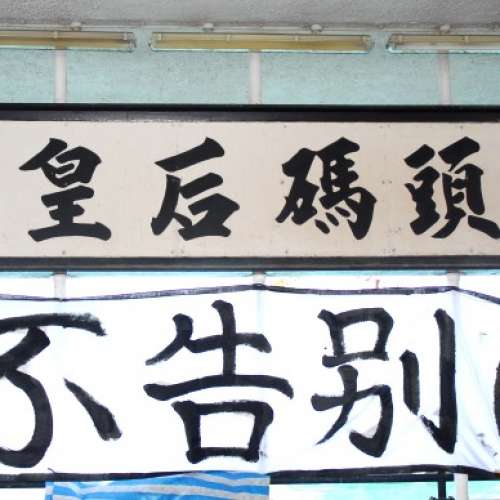 皇后碼頭
不告别